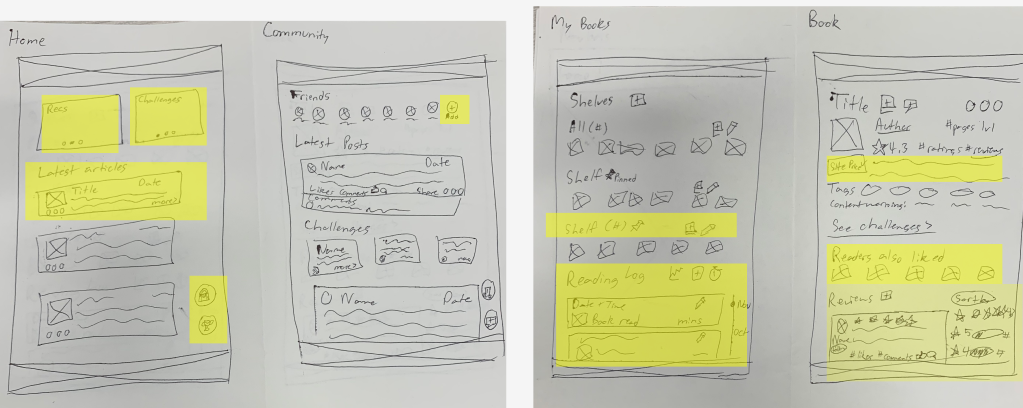 Home
Recs
Challenges
Latest articles
Title Date
more>
Community
Friends
Latest Posts
Name Date
Likes Comment Share
Comments
Challenges
Name
more>
Name Date
My Books
Shelves
All (#)
Shelf Pinned
Shelf (#)
Reading Log
Date + Time
Book read mins
Nov
Oct
Book
Title
Author #pages lvl
4.3 #ratings #reviews
Tags
Content warning:
See challenges >
Readers also liked
Reviews
Sort by
Name
#likes #comments
5
4